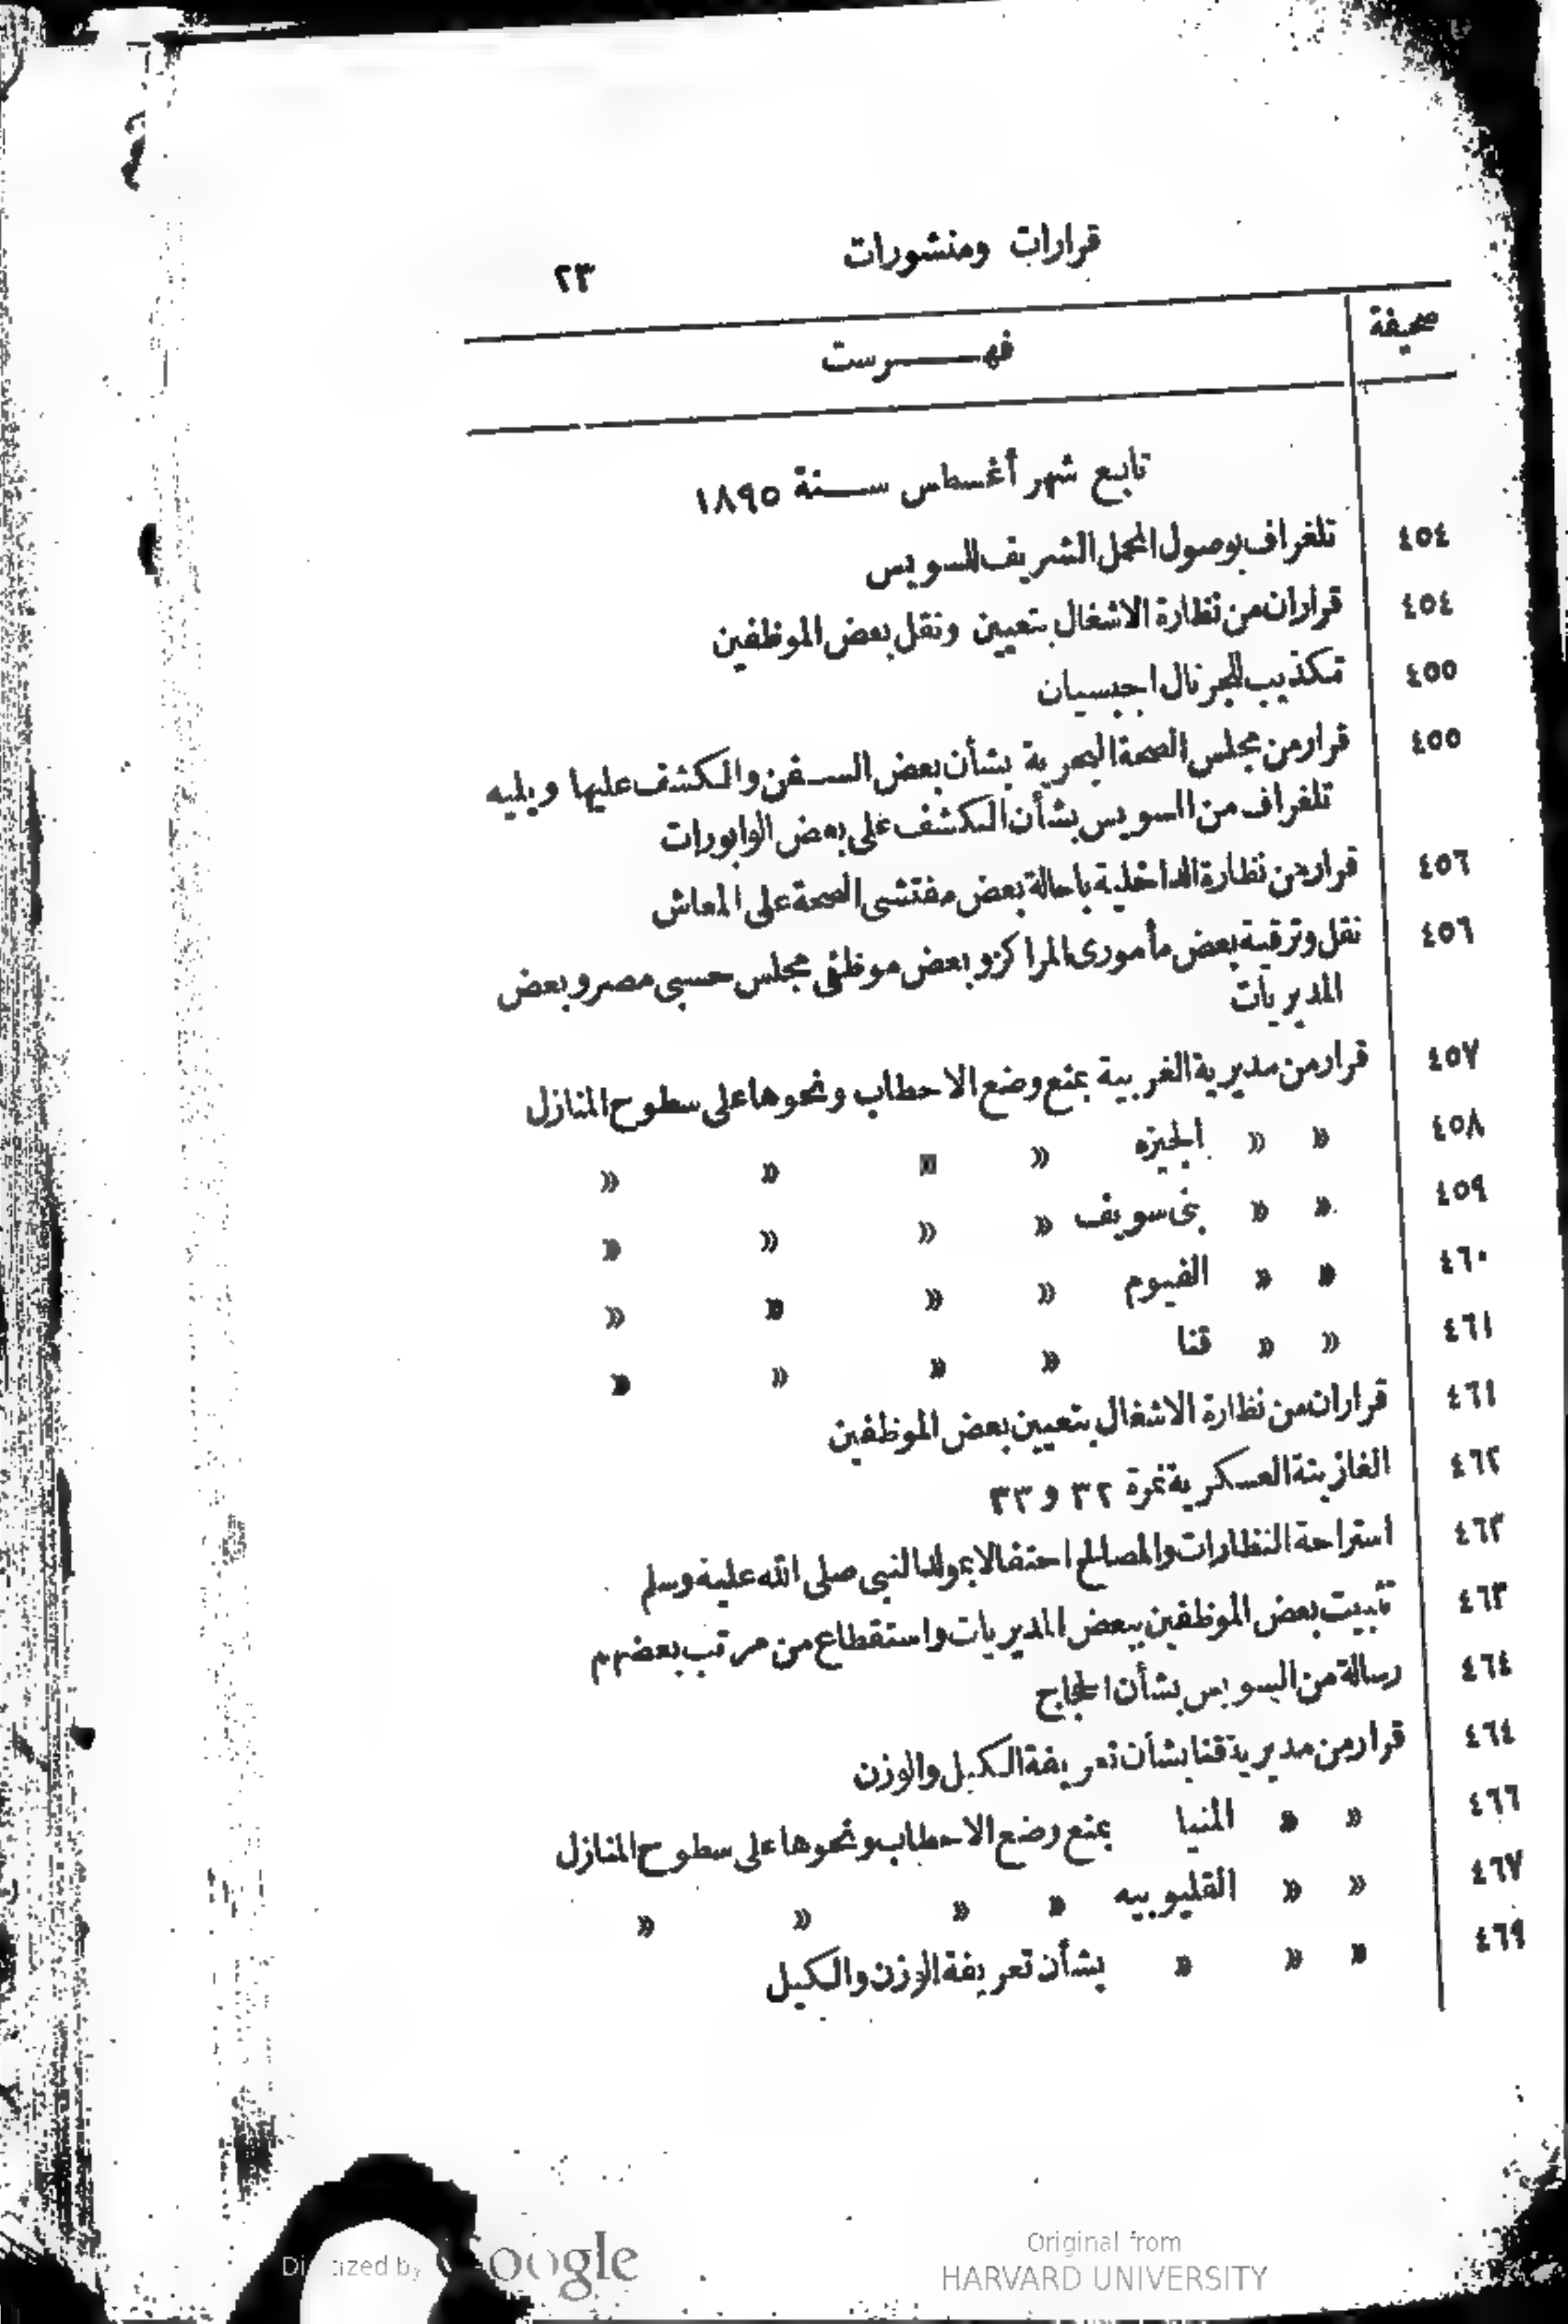 قرارات ومنشورات ٢٣
صحيفة فهرست
تابع شهر أغسطس سنة ١٨٩٥
٤٥٤ تلغراف بوصول المحمل الشريف للسويس
٤٥٤ قراران من نظارة الاشغال بتعيين ونقل بعض الموظفين
٤٥٥ تكذيب للجرنال اجبسيان
٤٥٥ قرار من مجلس الصحة البحرية بشأن بعض السفن والكشف عليها ويليه
تلغراف من السويس بشأن الكشف على بعض الوابورات
٤٥٦ قرار من نظارة الداخلية باحالة بعض مفتشى الصحة على المعاش
٤٥٦ نقل وترقية بعض مأمورى المراكز وبعض موظفى مجلس حسبى مصر وبعض
المديريات
٤٥٧ قرار من مديرية الغربية بمنع وضع الاحطاب ونحوها على سطوح المنازل
٤٥٨ » » الجيزه » » » »
٤٥٩ » » بنى سويف » » » »
٤٦٠ » » الفيوم » » » »
٤٦١ » » قنا » » » »
٤٦١ قراران من نظارة الاشغال بتعيين بعض الموظفين
٤٦٢ الغازيتة العسكرية نمرة ٣٢ و ٣٣
٤٦٣ استراحة النظارات والمصالح احتفالا بمولد النبى صلى الله عليه وسلم
٤٦٣ تثبيت بعض الموظفين ببعض المديريات واستقطاع من مرتب بعضهم
٤٦٤ رسالة من السويس بشأن الحجاج
٤٦٤ قرار من مديرية قنا بشأن تعريفة الكيل والوزن
٤٦٦ » » المنيا بمنع وضع الاحطاب ونحوها على سطوح المنازل
٤٦٧ » » القليوبيه » » » »
٤٦٩ » » » بشأن تعريفة الوزن والكيل
Digitized by Google
Original from
HARVARD UNIVERSITY